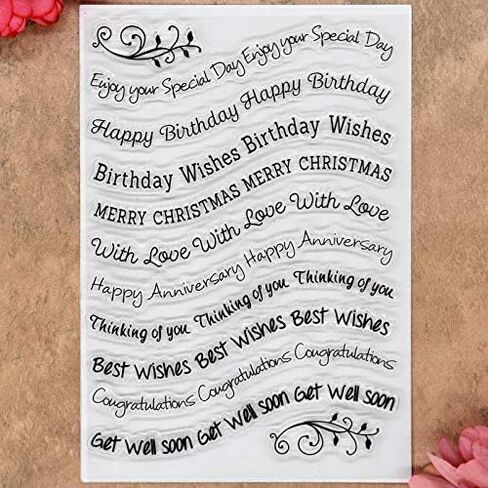 Enjoy your Special Day Enjoy your Special Day
Happy Birthday Happy Birthday
Birthday Wishes Birthday Wishes
MERRY CHRISTMAS MERRY CHRISTMAS
With Love With Love With Love
Happy Anniversary Happy Anniversary
Thinking of you Thinking of you Thinking of you
Best Wishes Best Wishes Best Wishes
Congratulations Congratulations Congratulations
Get Well soon Get Well soon Get Well soon